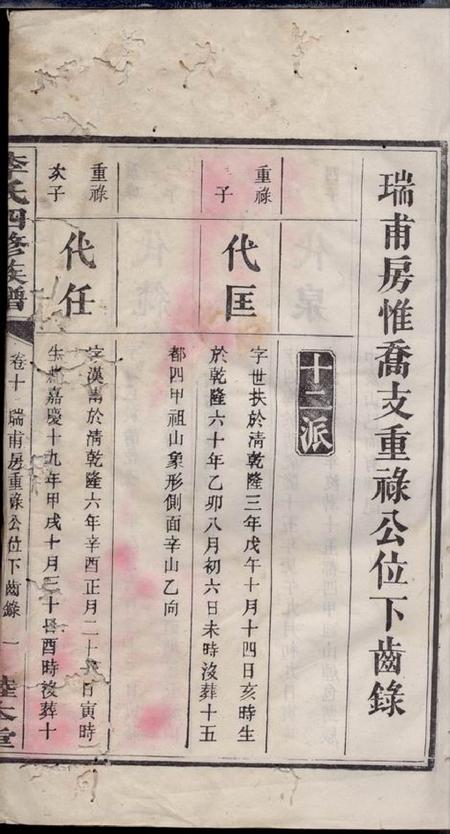 瑞甫房惟喬支重祿公位下齒錄
十二派
重祿
子
代匡
字世扶於清乾隆三年戊午十月十四日亥時生
於乾隆六十年乙卯八月初六日未時沒葬十五
都四甲祖山象形側面辛山乙向
重祿
次子
代任
字漢 於清乾隆六年辛酉正月二十 日寅時
生 嘉慶十九年甲戌十月三十日酉時沒葬十
李氏四修族譜
卷十 瑞甫房重祿公位下齒錄 一
本堂